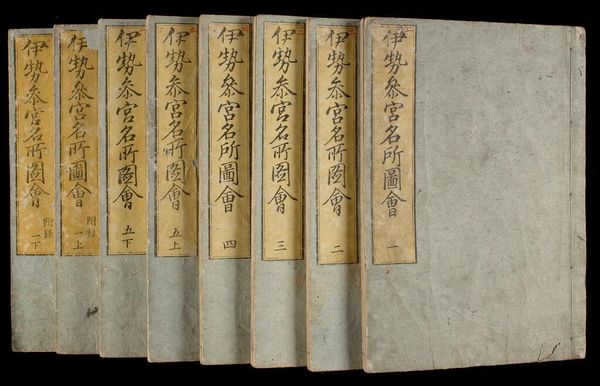 伊勢參宮名所圖會 一
伊勢參宮名所圖會 二
伊勢參宮名所圖會 三
伊勢參宮名所圖會 四
伊勢參宮名所圖會 五上
伊勢參宮名所圖會 五下
伊勢參宮名所圖會 附録 一上
伊勢參宮名所圖會 附録 一下